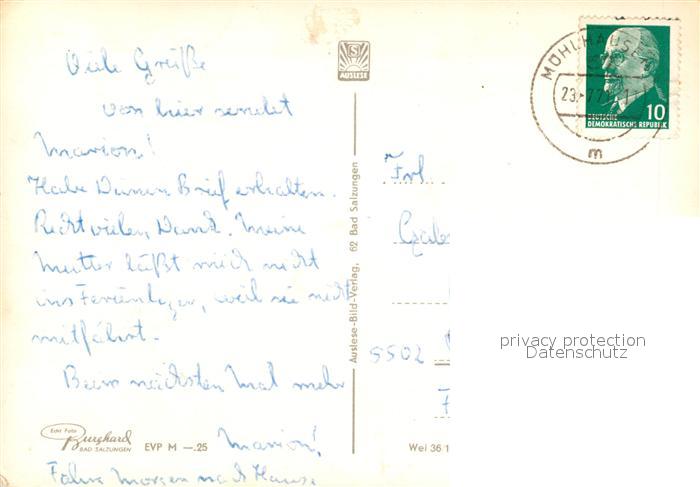 Viele Grüße
von hier sendet
Marion!
Habe Deinen Brief erhalten.
Recht vielen Dank. Meine
Mutter läßt mich nicht
ins Ferienlager, weil sie nicht
mitfährt.
Beim nächsten Mal mehr
Marion!
Fahre Morgen nach Hause
Echt Foto
Burghard
BAD SALZUNGEN
EVP M —.25
AUSLESE
Auslese-Bild-Verlag, 62 Bad Salzungen
MÜHLHAUSEN
23.-7.7
m
10
DEUTSCHE
DEMOKRATISCHE REPUBLIK
Frl
5502
Wei 36 1
privacy protection
Datenschutz